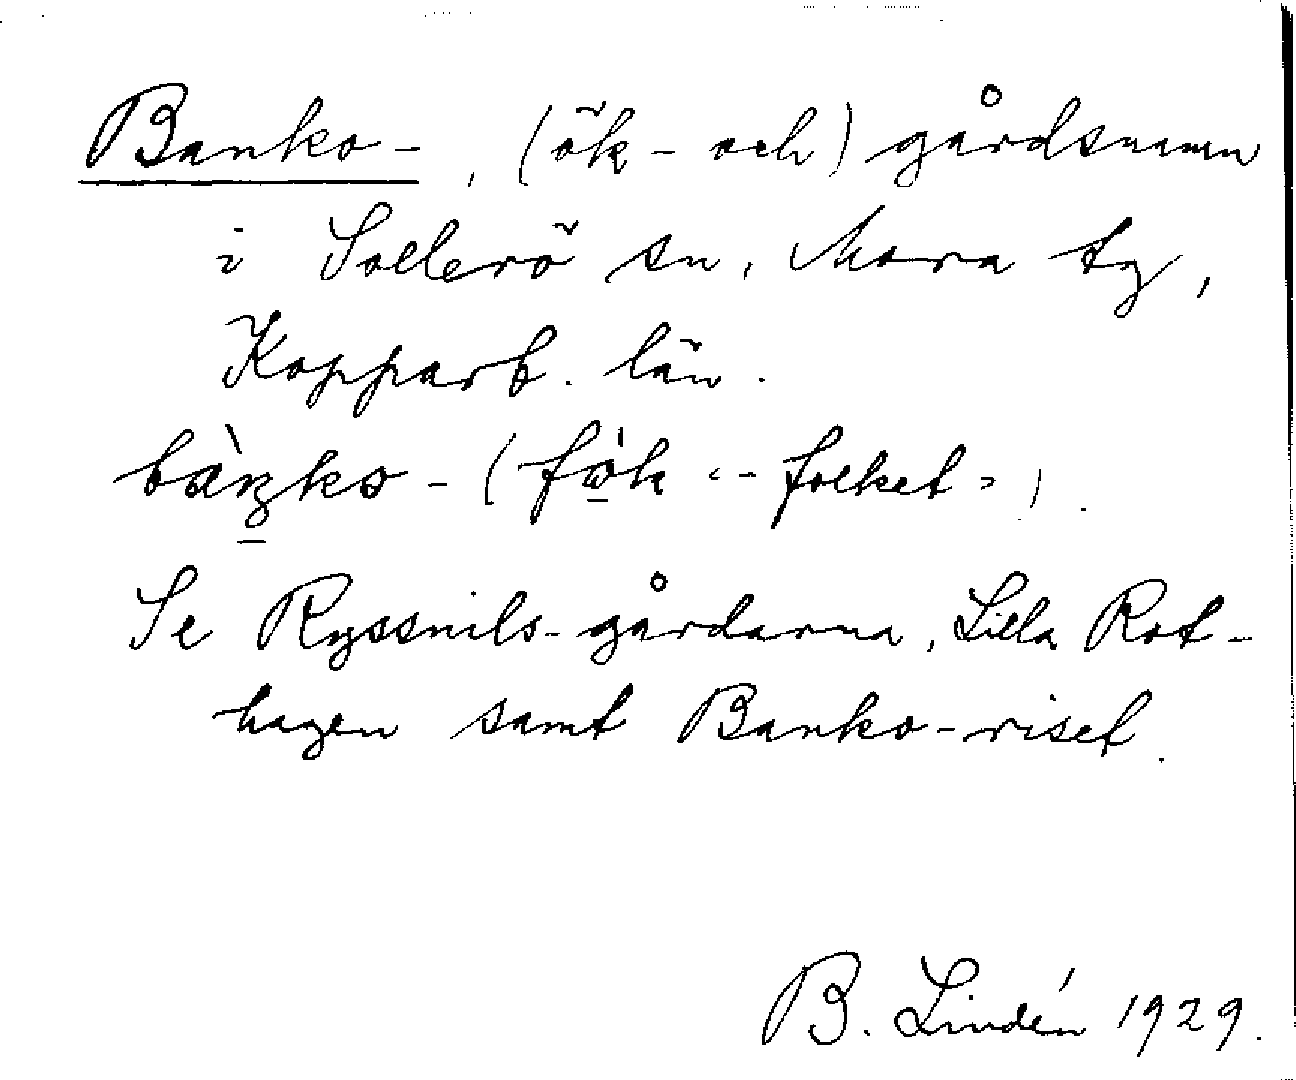 Banko-, (ök- och) gårdsnamn
i Sollerö sn, Mora tg,
Kopparb. län.
bàŋko- (fɷ̀k '-folket').
Se Ryssnils-gårdarna, Lilla Rot-
hagen samt Banko-riset.
B. Lindén 1929.